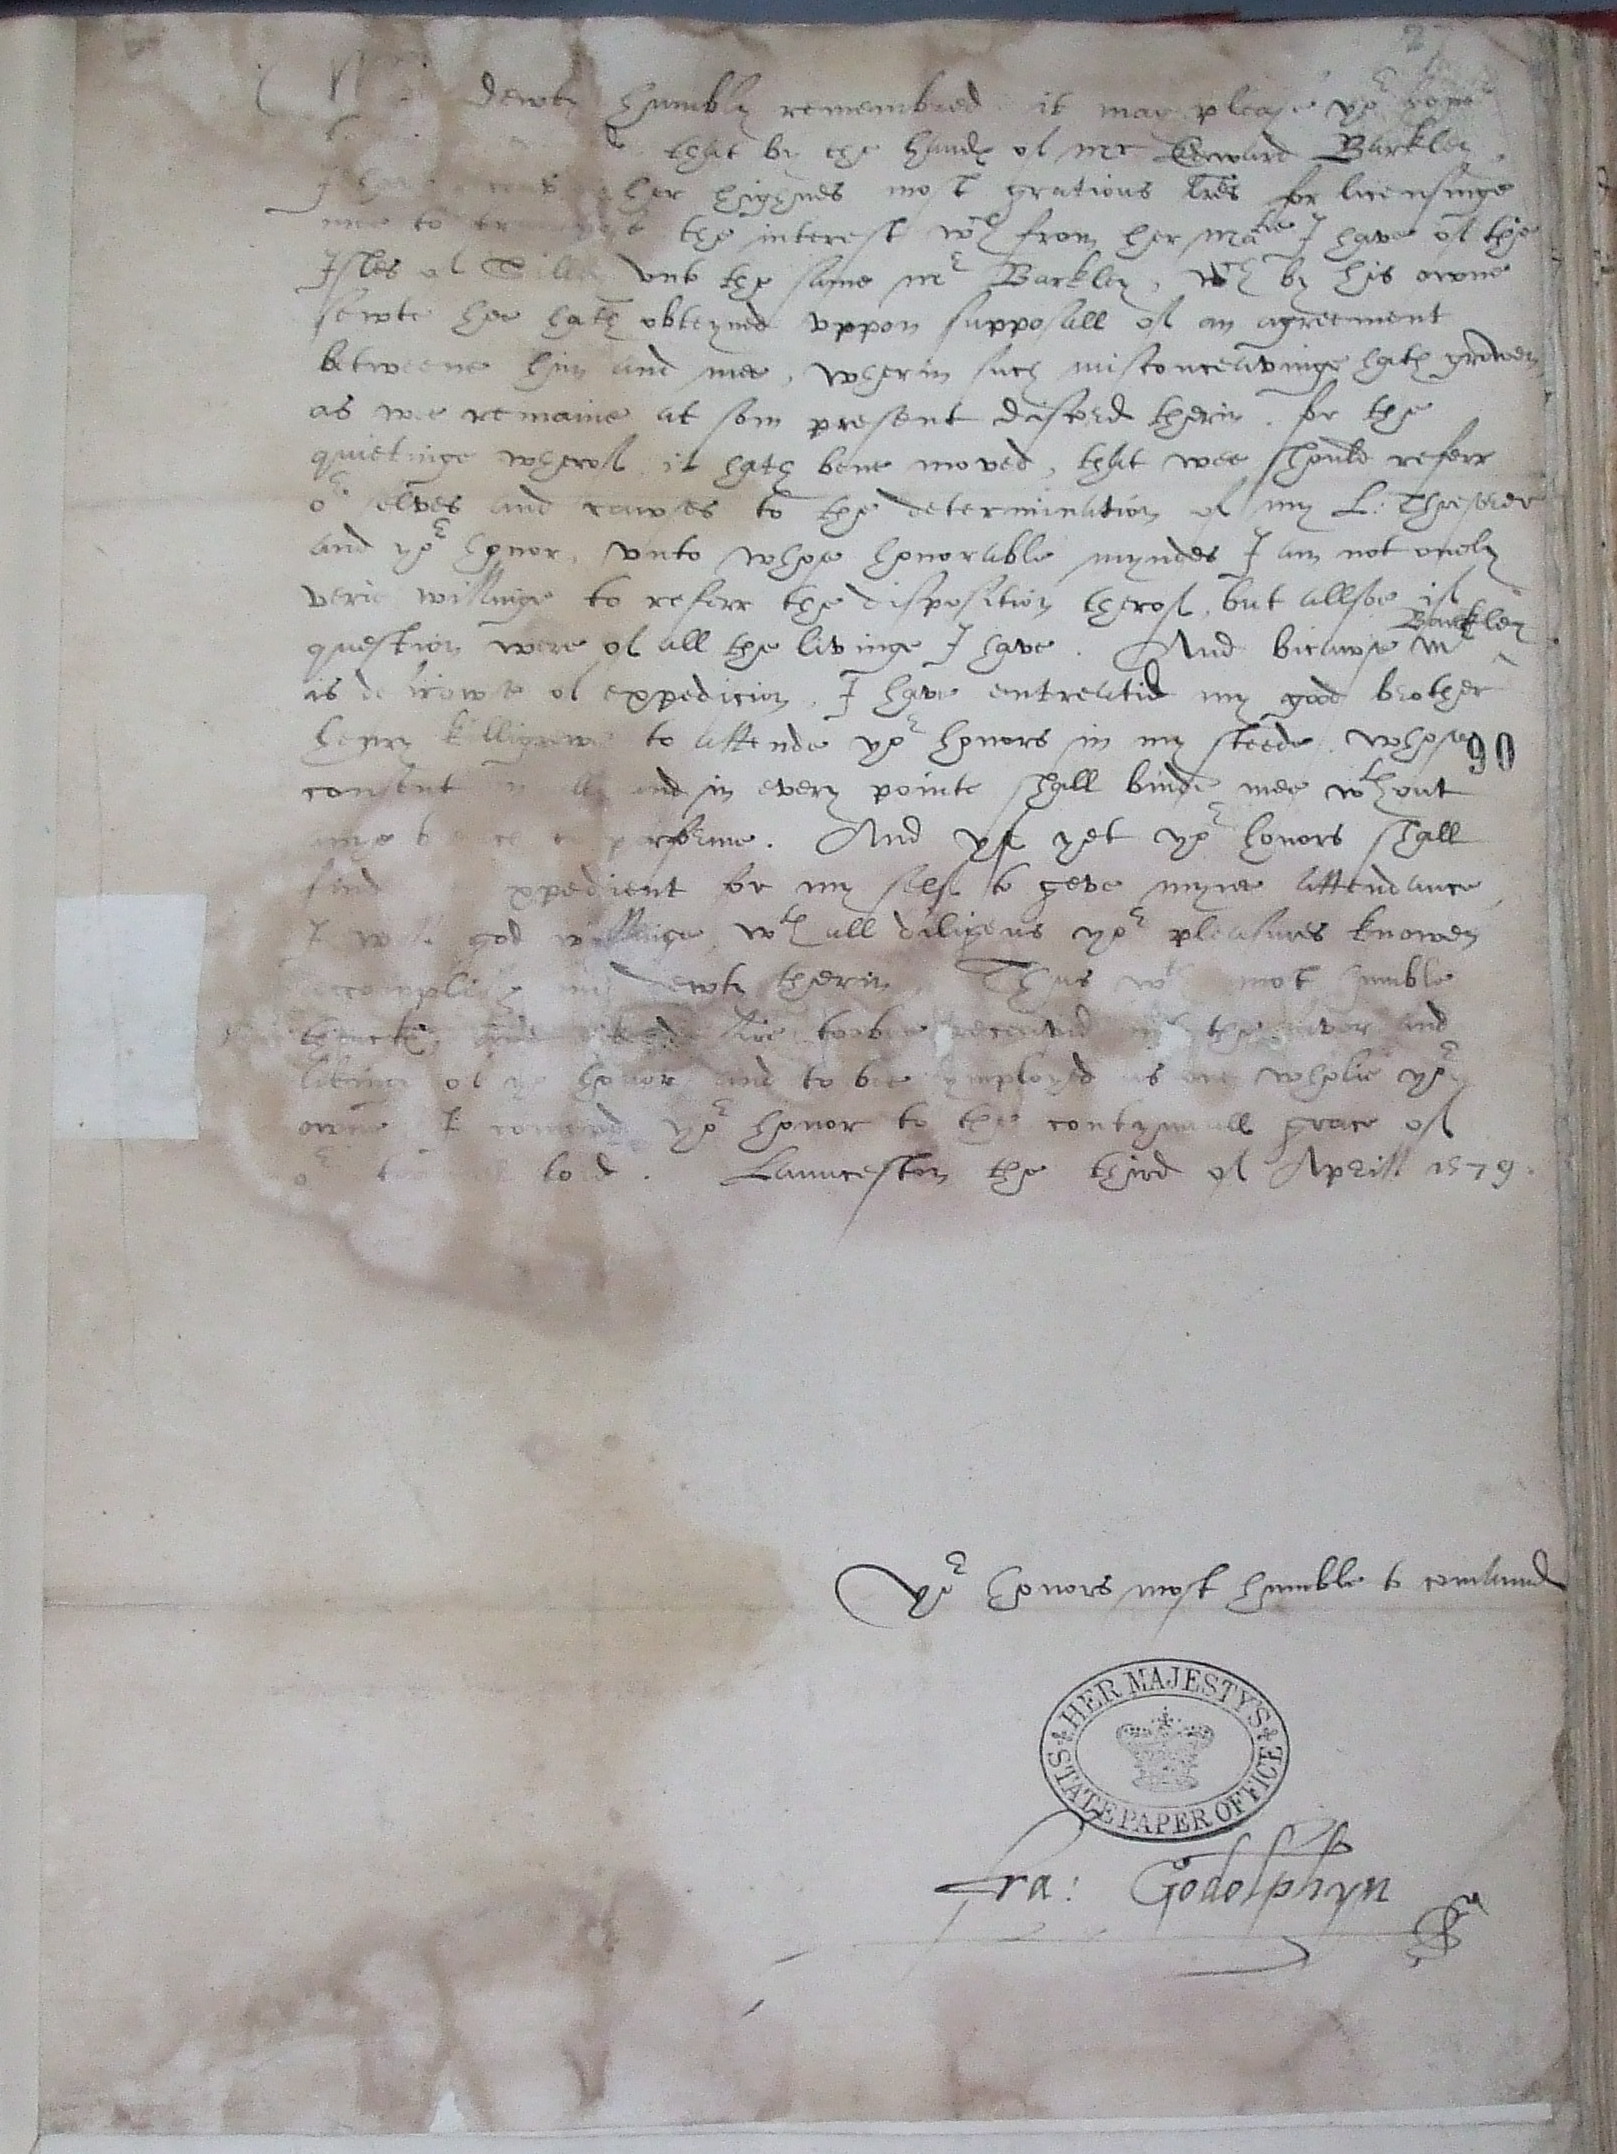 dewty humbly remembred it may please yor honor
that by the hands of mr Edward Barkley
I her highnes most gratious lres for licensinge
me to the interest wch from her matie I have of the
Isles of Sille unto the same mr Barkley, wch by his owne
sewte hee hath obteyned uppon supposall of an agreement
betweene him and mee, wherin such misconceavinge hath growen
as wee remaine at som present discord therin. for the
quietinge wherof it hath bene moved, that wee should referr
or selves and cawses to the determination of my L: Thresorer
and yor honor, unto whose honorable myndes I am not onely
verie willinge to referr the disposition therof, but allsoe if
question were of all the livinge I have. And bicawse mr Barkley
is desirowse of expedicion, I have entreatid my good brother
henry killigrewe to attende yor honors in my steede, whose
90
consent in all and in every pointe shall binde mee wthout
to performe. And yf yet yor honors shall
find expedient for my self to geve myne attendance,
I will god willinge, wth all diligens yor pleasures knowen
accomplish my dewty therin. Thus wth most humble
thanckes and desire to bee receavid into the favor and
likinge of yor honor and to bee imployed as one wholie yor
owne I comend yor honor to the contynuall grace of
or lord. Launceston the third of Aprill 1579.
Yor honors most humble to comaund
HER MAJESTY'S
STATE PAPER OFFICE
Fra: Godolphyn